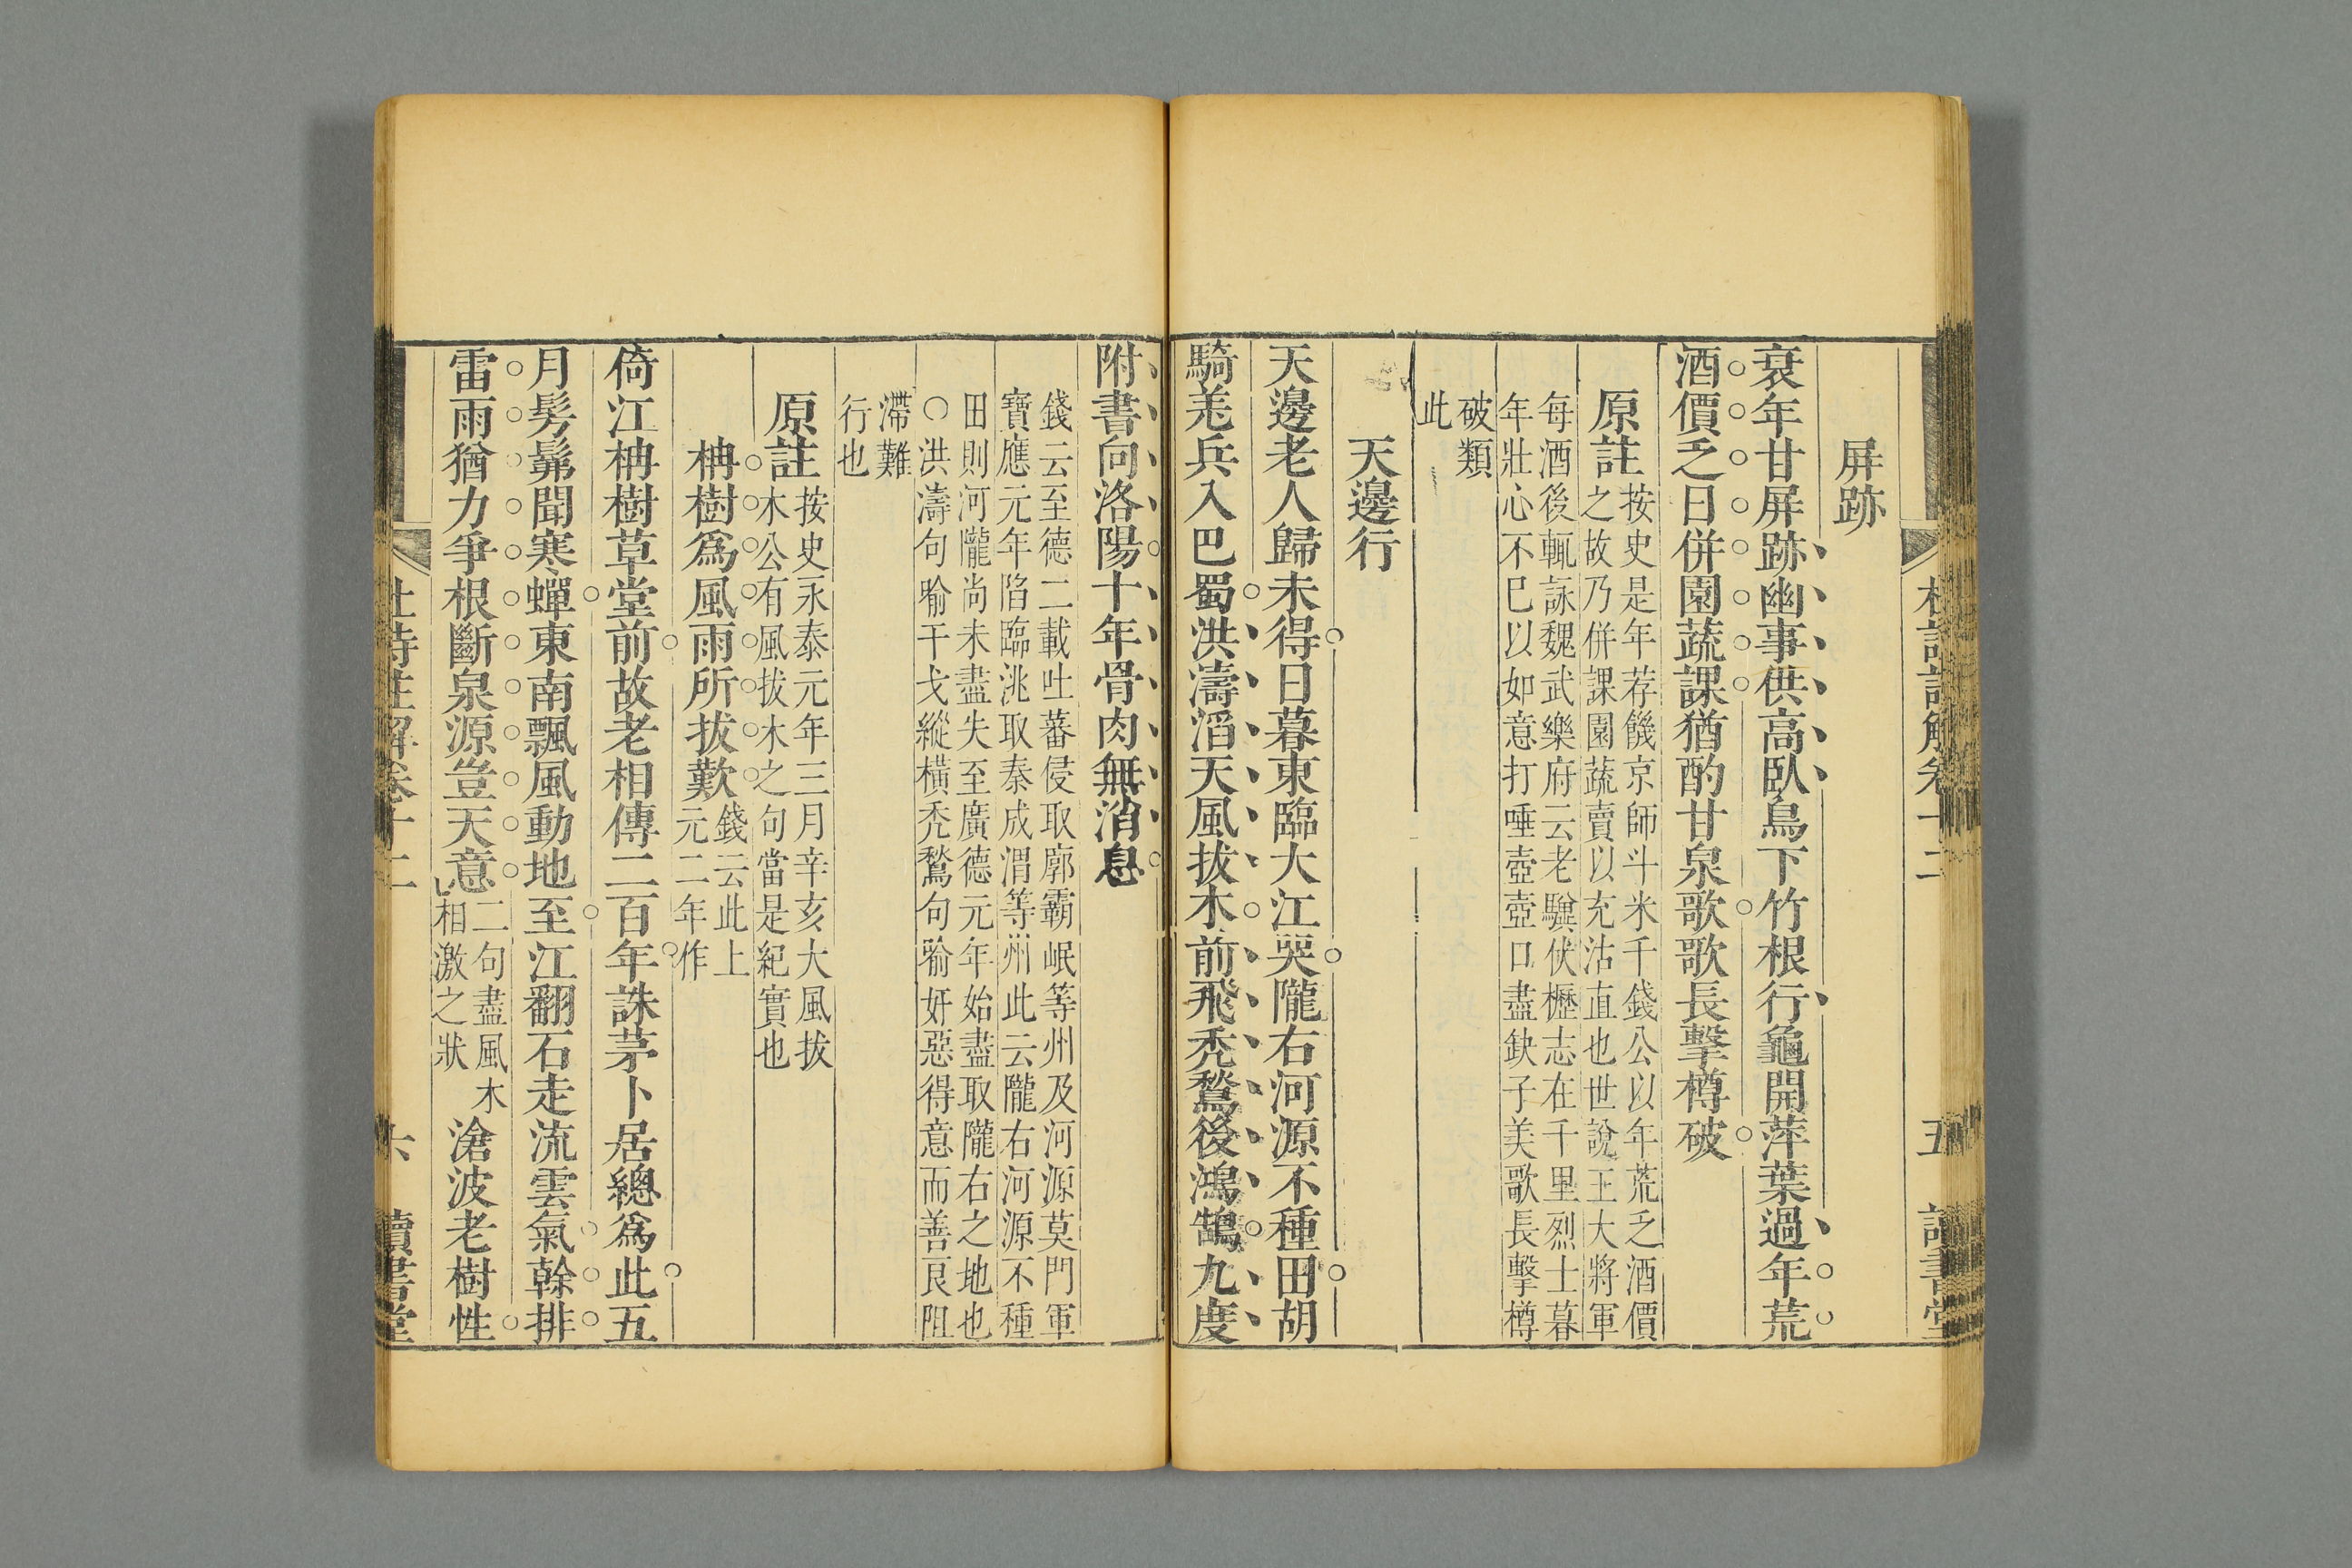 屏跡
衰年甘屏跡幽事供高臥鳥下竹根行龜開萍葉過年荒
酒價乏日併園蔬課猶酌甘泉歌歌長擊樽破
原註
按史是年荐饑京師斗米千錢公以年荒乏酒價
之故乃併課園蔬賣以充沽直也世說王大將軍
每酒後輒詠魏武樂府云老驥伏櫪志在千里烈士暮
年壯心不已以如意打唾壺壺口盡缺子美歌長擊樽
破類
此
天邊行
天邊老人歸未得日暮東臨大江哭隴右河源不種田胡
騎羌兵入巴蜀洪濤滔天風拔木前飛禿鶖後鴻鵠九度
附書向洛陽十年骨肉無消息
錢云至德二載吐蕃侵取廓霸岷等州及河源莫門軍
寶應元年陷臨洮取秦成渭等州此云隴右河源不種
田則河隴尚未盡失至廣德元年始盡取隴右之地也
○洪濤句喻干戈縱橫禿鶖句喻奸惡得意而善良阻
滯難
行也
原註
按史永泰元年三月辛亥大風拔
木公有風拔木之句當是紀實也
柟樹爲風雨所拔歎
錢云此上
元二年作
倚江柟樹草堂前故老相傳二百年誅茅卜居總爲此五
月髣髴聞寒蟬東南飄風動地至江翻石走流雲氣榦排
雷雨猶力爭根斷泉源豈天意
二句盡風木
相激之狀
滄波老樹性
杜詩註解卷十二
六
讀書堂